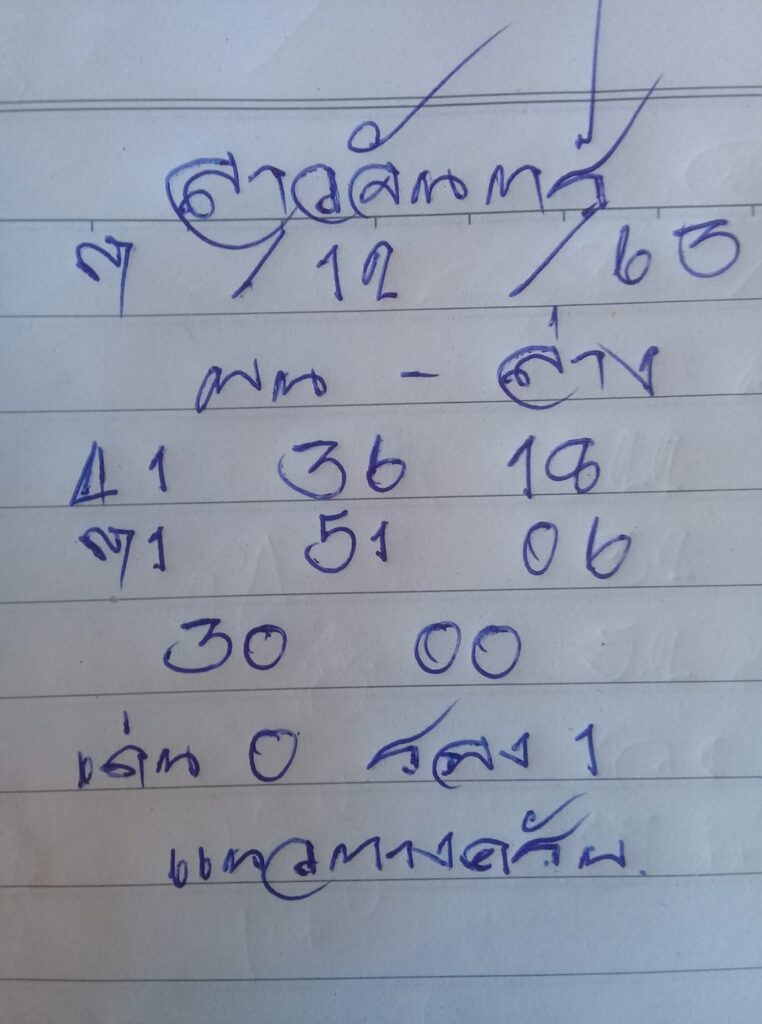 ลาวจันทร์
7 / 12 / 63
บน - ล่าง
41 36 18
71 51 06
30 00
เด่น 0 รอง 1
แนวทางครับ.